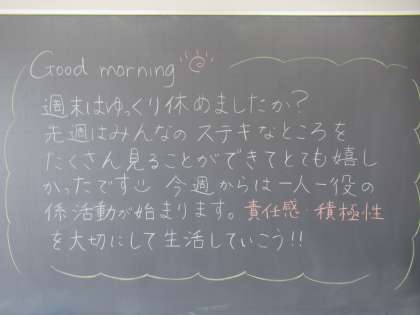 Good morning
週末はゆっくり休めましたか？
先週はみんなの ステキなところを
たくさん見ることができてとても嬉し
かったです 今週からは一人一役の
係活動が始まります。責任感・積極性
を大切にして生活していこう!!